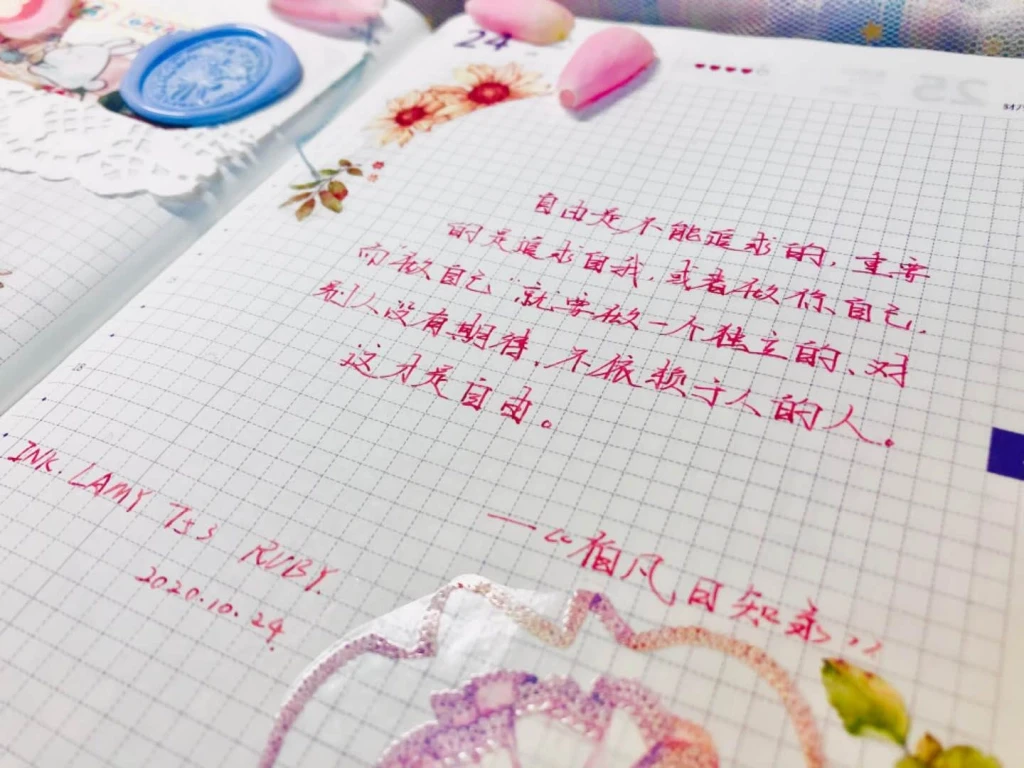 24
25
自由是不能追求的,重要
的是追求自我,或者做你自己,
而做自己,就要做一个独立的、对
别人没有期待,不依赖于人的人。
这才是自由。
——“
18
INK. LAMY T53 RUBY.
2020.10.24